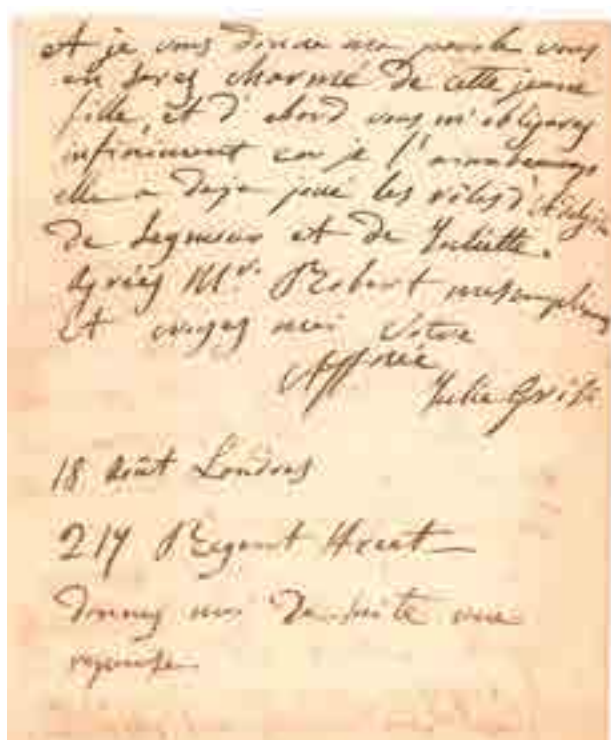 Et je vous donne ma parole vous
en serez charmé de cette jeune
fille, et d'abord vous m'obligerez
infiniment car je l'aime beaucoup
elle a deja joué les rôles d'Adalgisa
de Seymour et de Juliette.
Agréez Mr. Robert mes compliments
et croyez moi votre
Affnée
Julie Grisi
18 Août Londres
217 Regent Street
Donnez moi de suite une
reponse